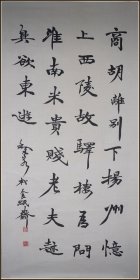 商胡離別下揚州憶
上西陵故驛樓為問
淮南米貴賤老夫乘
興欲東遊